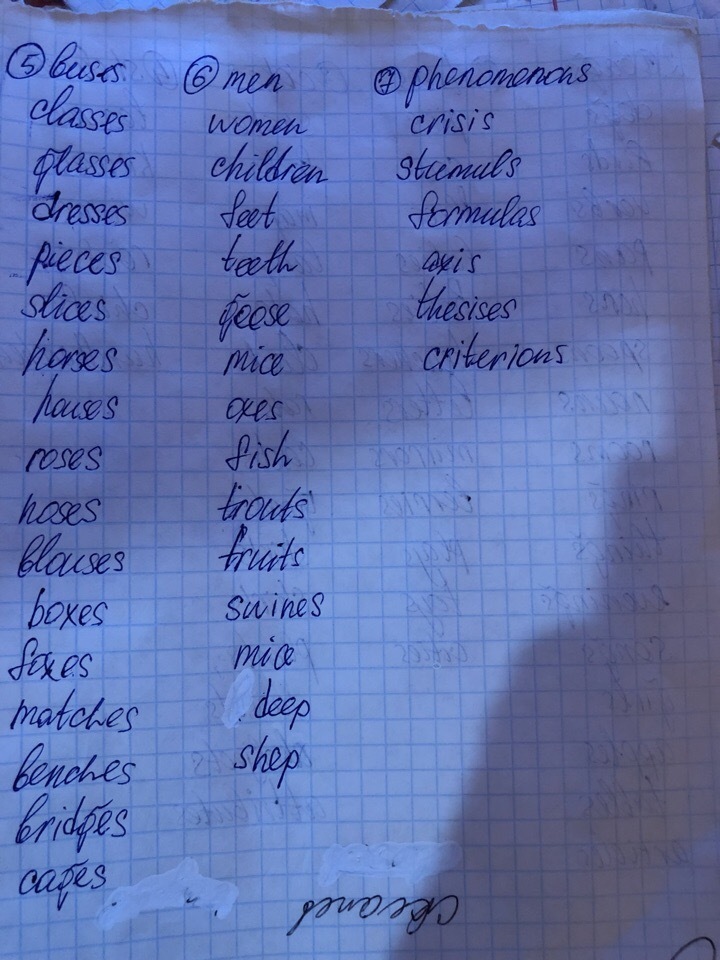 ⑤ buses
classes
glasses
dresses
pieces
slices
horses
houses
roses
noses
blouses
boxes
foxes
matches
benches
bridges
cages
⑥ men
women
children
feet
teeth
goose
mice
oxes
fish
trouts
fruits
swines
mice
deep
shep
⑦ phenomenons
crisis
stimuls
formulas
axis
thesises
criterions